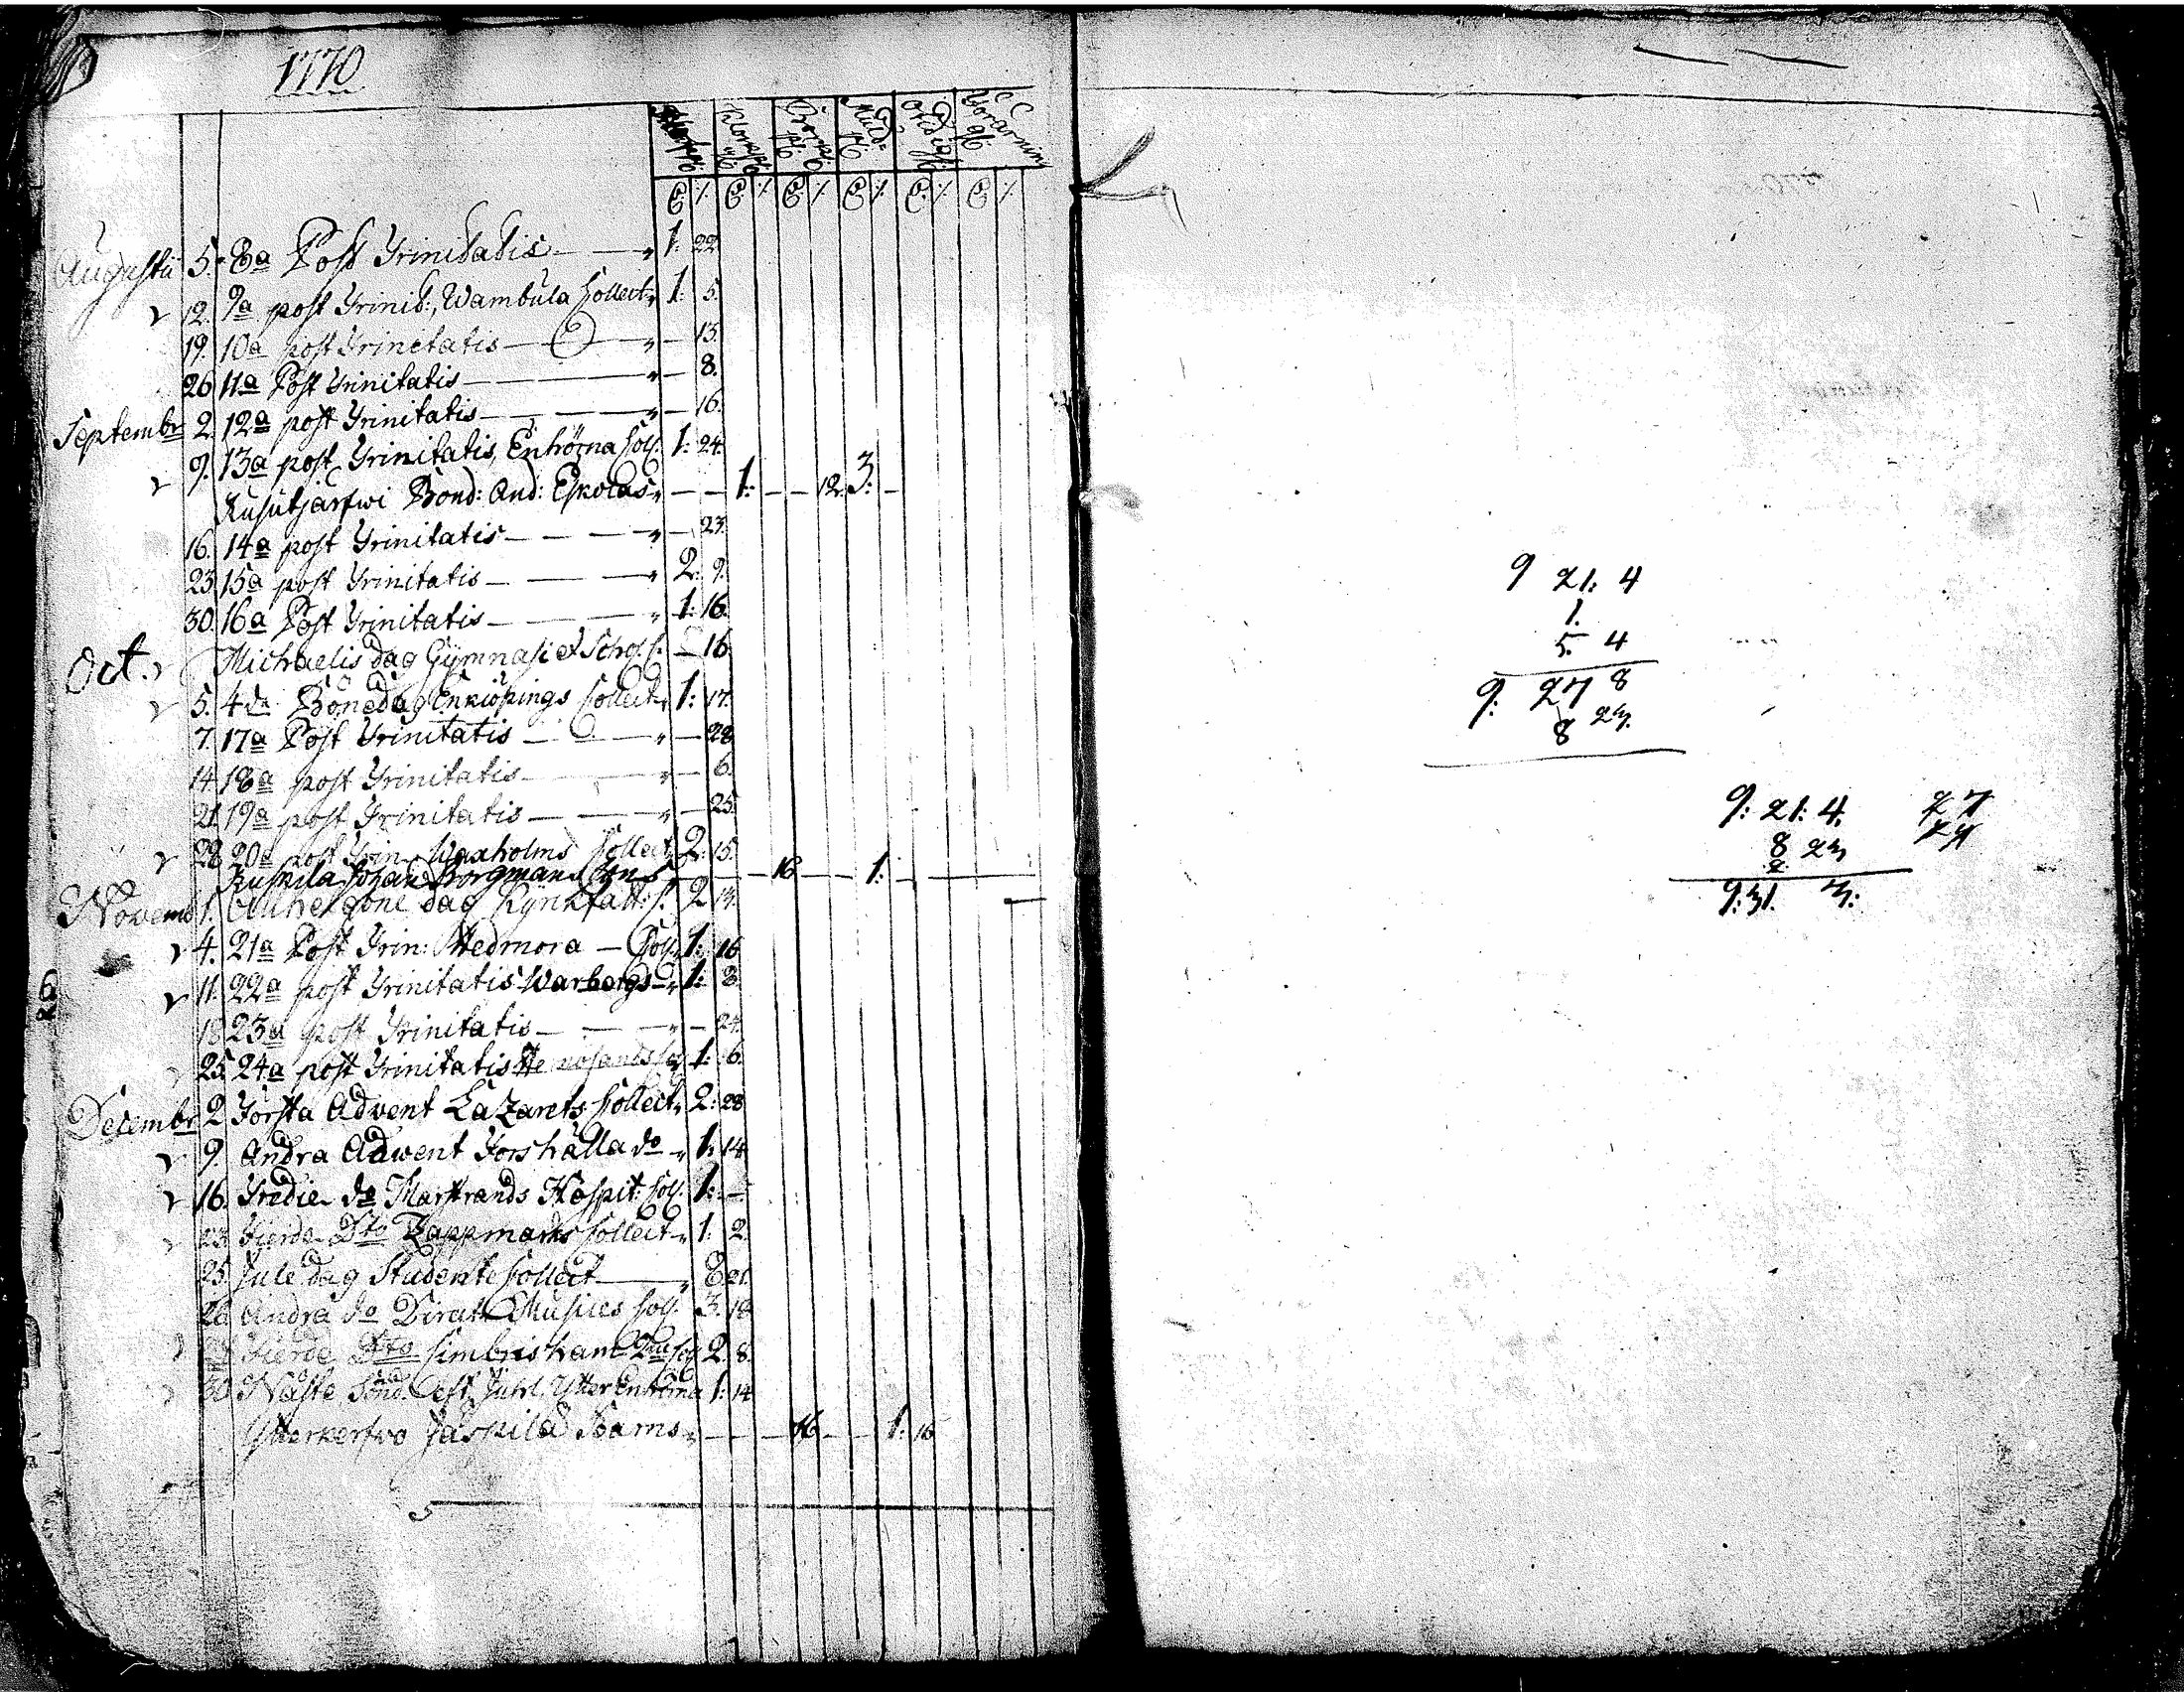 1770
Klockp:
Bor
Mull=
Förärning
C: /: C: /: C: /: C: /: C: /: C: /:
Augusti 5. 8a Post Trinitatis — — „ 1: 22
12. 9a post Trinit:, Wambula Collect „ 1: 5.
19. 10a post Trinitatis — — „ — 13.
26 11a Post Trinitatis — — „ — 8.
Septembr 2. 12a post Trinitatis — — „ — 16.
9. 13a post Trinitatis, Enhörna Coll. 1: 24.
Kusutjärfwi Bond: And: Eskolas „ — — 1: — — 12. 3: —
16. 14a post Trinitatis — — — „ — 23.
23. 15a post Trinitatis — — „ 2: 9.
30. 16a Post Trinitatis — — „ 1: 16.
Oct. Michaelis dag Gÿmnasie et Schol. C. — 16
5. 4de Bönedag Enkiöpings Collect „ 1: 17.
7. 17a Post Trinitatis — — „ — 28
14. 18a post Trinitatis — — „ — 6.
21. 19a post Trinitatis — — „ — 25.
28 20a post Trin. Waxholms Collect 2: 15.
Kuskila Johan Borgmans Sons — — — 16 — — 1: —
Novemb 1. Alhelgone dag Kÿrkfatt: C. 2 14.
4. 21a Post Trin: Hedmora — Coll. 1: 16
11. 22a post Trinitatis Warbergs — „ 1: 8
18 23a post Trinitatis — — „ — 24.
25 24a post Trinitatis Hernösands Coll 1: 6.
Decembr 2 Första Advent Lazarets Collect „ 2: 28
9. Andra Adwent Forshälla do „ 1: 14
16. Tredie do Marstrands Hospit: Coll. 1: —
23. Fierde Dto Lappmarks Collect „ 1: 2.
25. Jule dag Studente Collect — „ 8 21.
26 Andra do Direct. Musices Coll. 3. 18
Fierde Dto Cimbrishamn Coll 2. 8.
30 Näste Sönd. eft. Juhl, Ytter Enhörna 1: 14
Ytterkerfwo Jaskila Barns „ — — — 16 — — 1: 16
9 21: 4
1.
5. 4
9: 27 8
8 23.
9: 21: 4. 27
8 23
2
9: 31. 3: